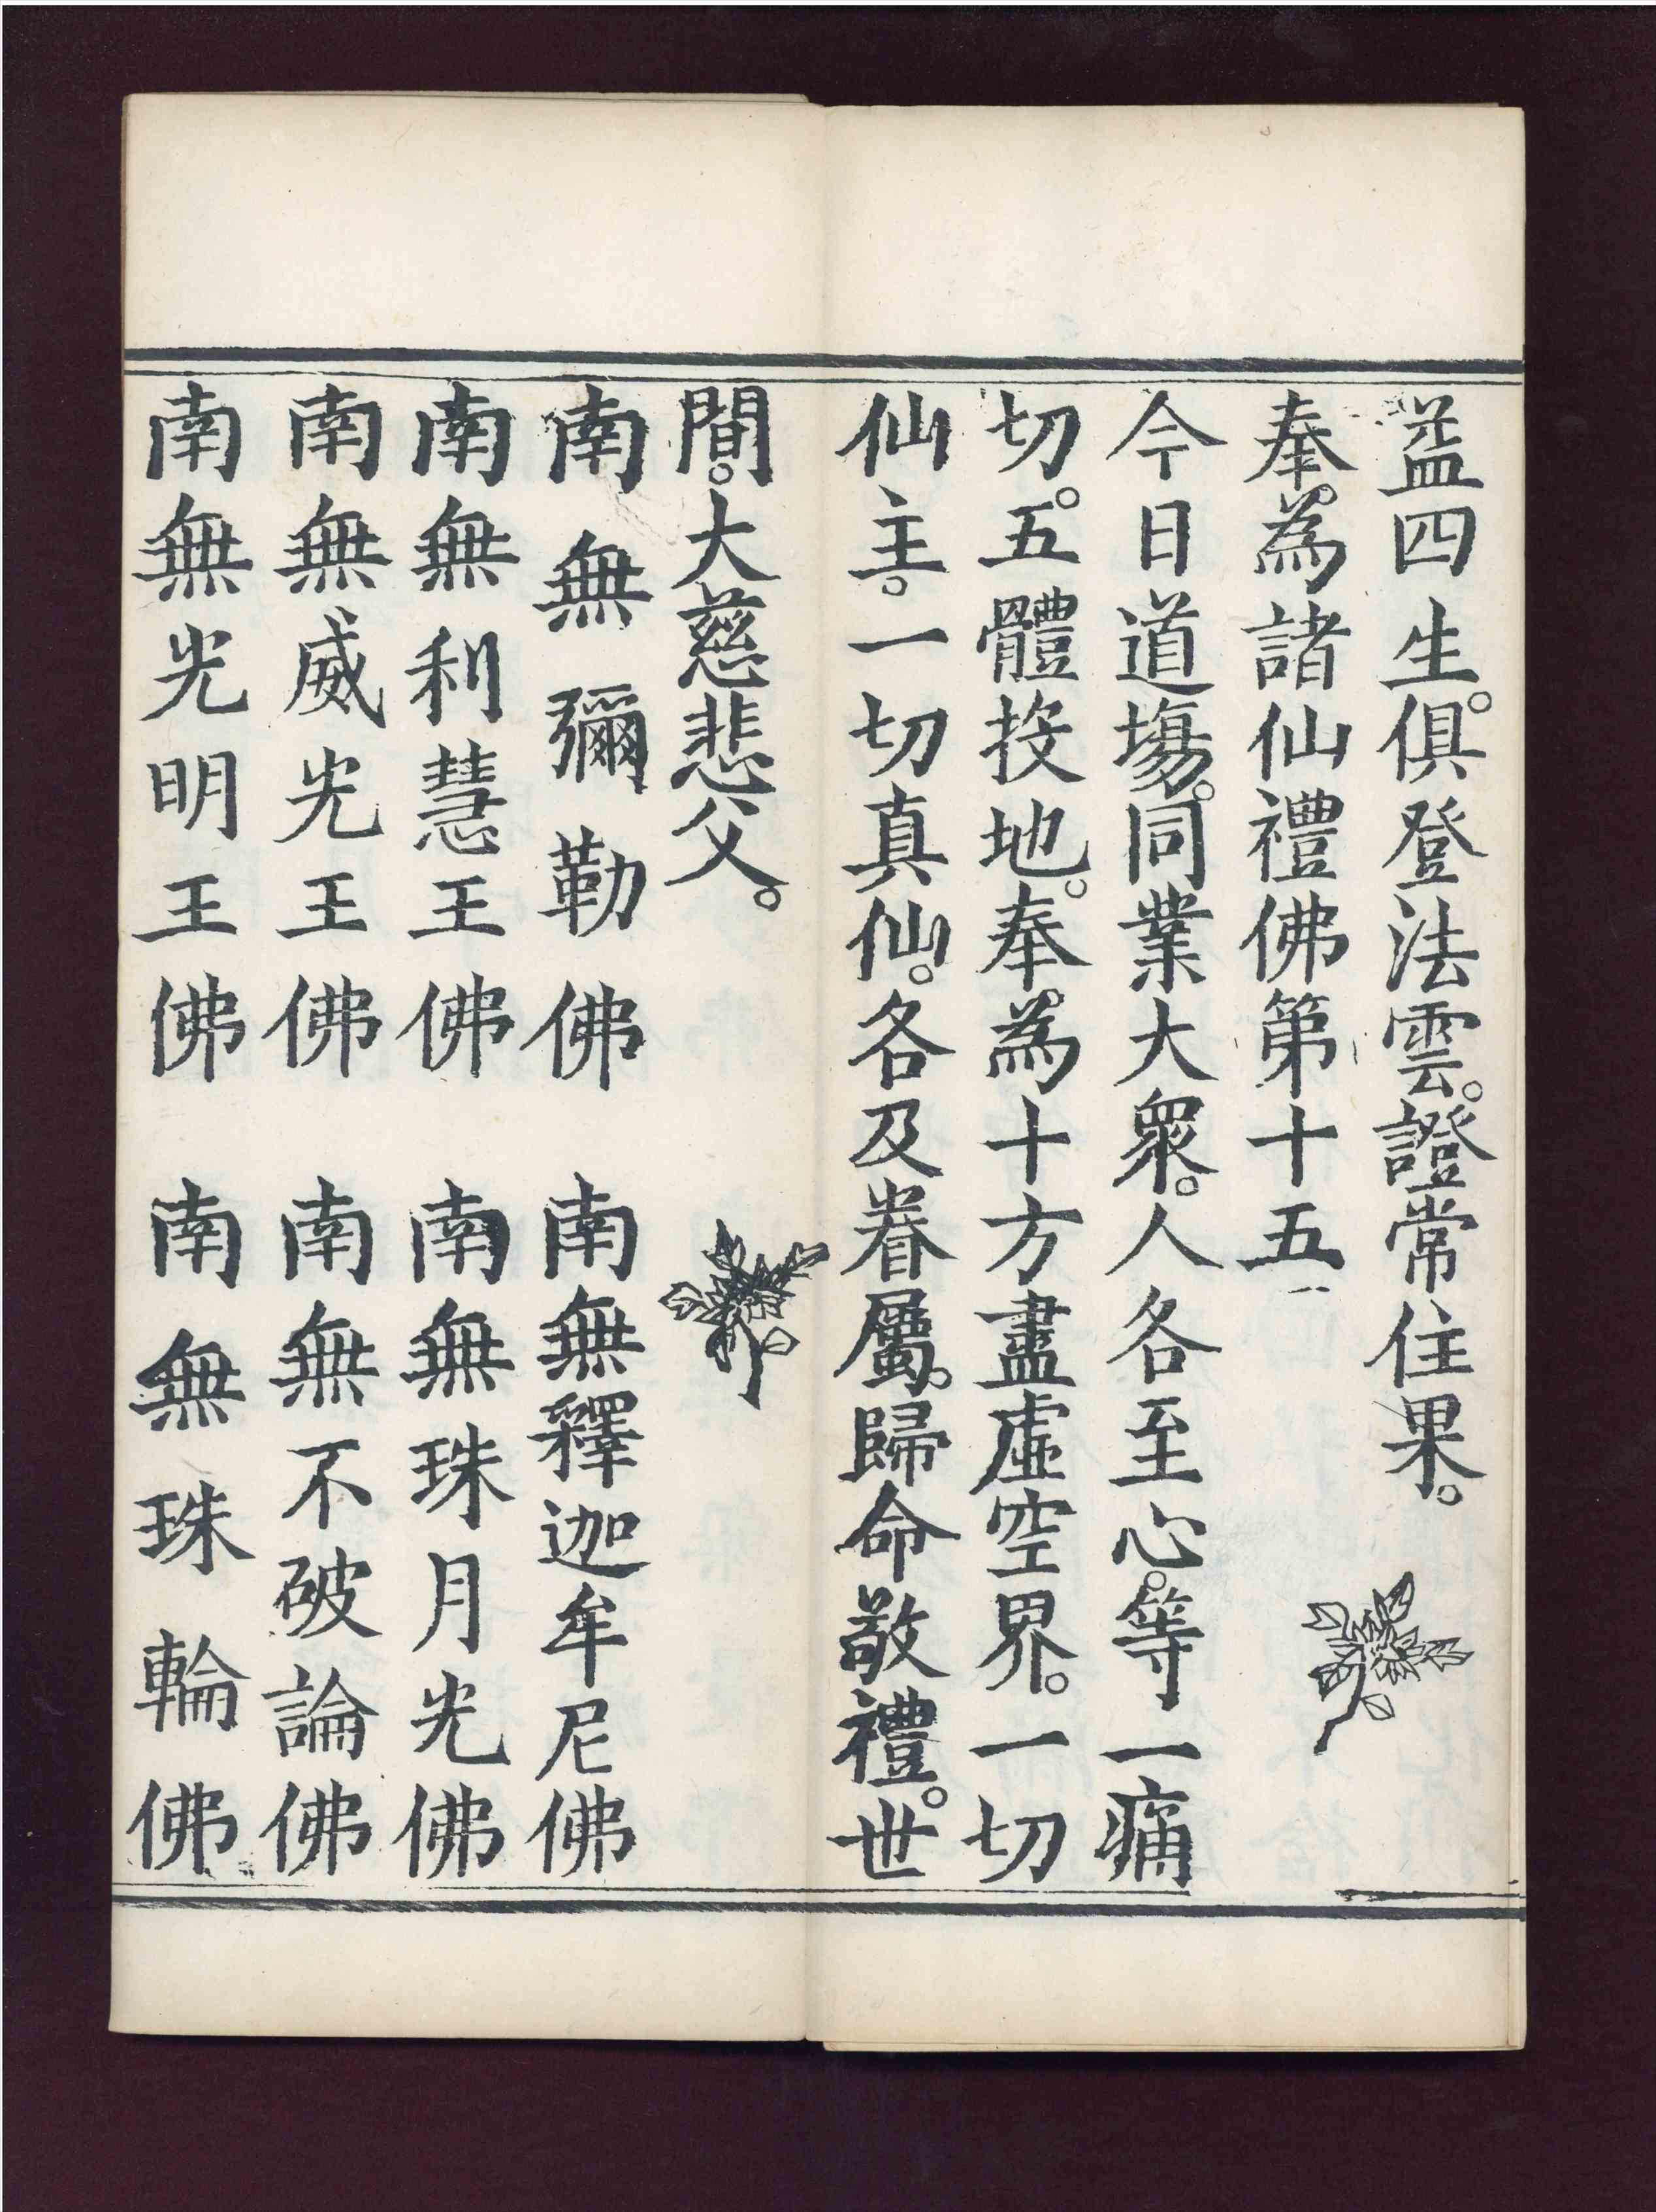 益四生。俱登法雲。證常住果。
奉為諸仙禮佛第十五
今日道場。同業大眾。人各至心。等一痛
切。五體投地。奉為十方盡虛空界。一切
仙主。一切真仙。各及眷屬。歸命敬禮。世
間。大慈悲父。
南無彌勒佛　南無釋迦牟尼佛
南無利慧王佛　南無珠月光佛
南無威光王佛　南無不破論佛
南無光明王佛　南無珠輪佛